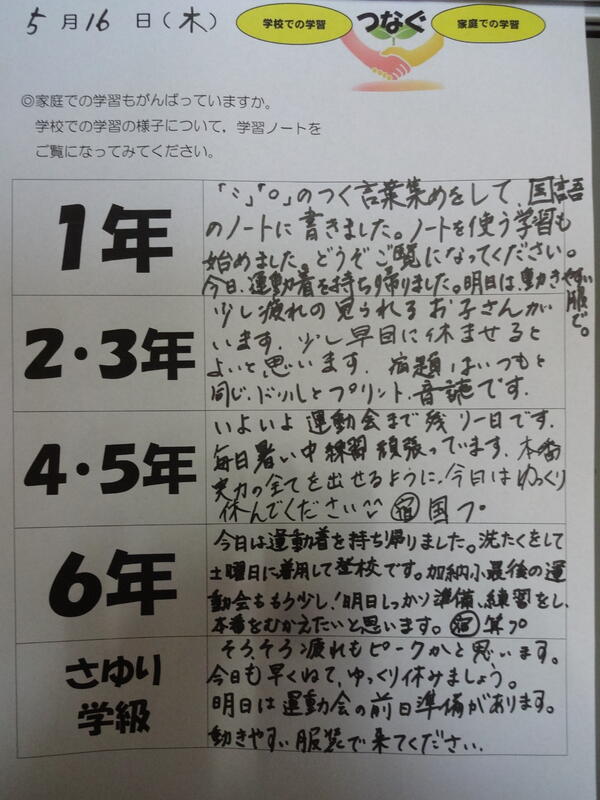 5月16日(木)
学校での学習 つなぐ 家庭での学習
◎家庭での学習もがんばっていますか。
学校での学習の様子について，学習ノートを
ご覧になってみてください。
1年
「゛」「゜」のつく言葉集めをして、国語
のノートに書きました。ノートを使う学習も
始めました。どうぞご覧になってください。
今日、運動着を持ち帰りました。明日は、動きやすい
服で。
2・3年
少し疲れの見られるお子さんが
います。少し早目に休ませると
よいと思います。宿題はいつもと
同じ、ドリルとプリント、音読です。
4・5年
いよいよ運動会まで残り一日です。
毎日暑い中練習頑張っています。本番
実力の全てを出せるように、今日はゆっくり
休んでください^^ 宿 国プ
6年
今日は運動着を持ち帰りました。洗たくをして
土曜日に着用して登校です。加納小最後の運
動会ももう少し!明日しっかり準備、練習をし、
本番をむかえたいと思います。宿 算プ
さゆり
学級
そろそろ疲れもピークかと思います。
今日も早くねて、ゆっくり休みましょう。
明日は運動会の前日準備があります。
動きやすい服装で来てください。